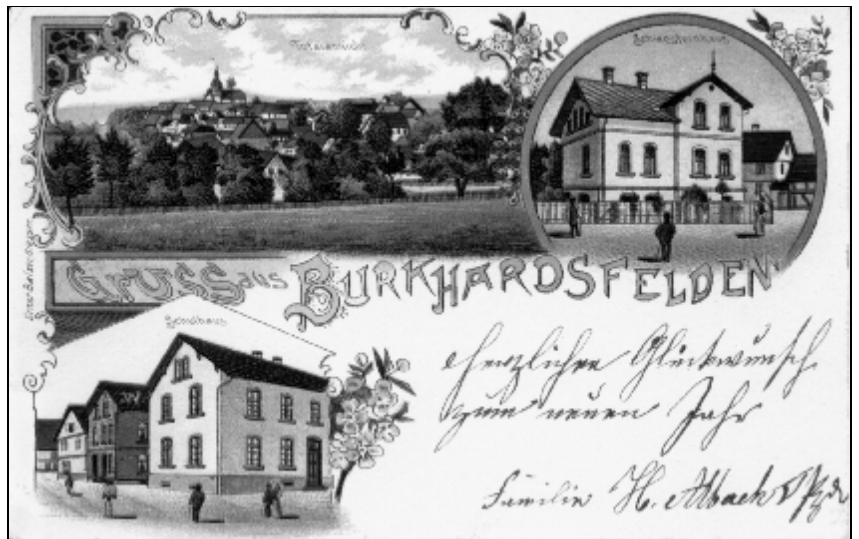 Totalansicht
Gruss aus BURKHARDSFELDEN
Schulhaus
herzlichen Glückwunsch
zum neuen Jahr
Familie H. Albach